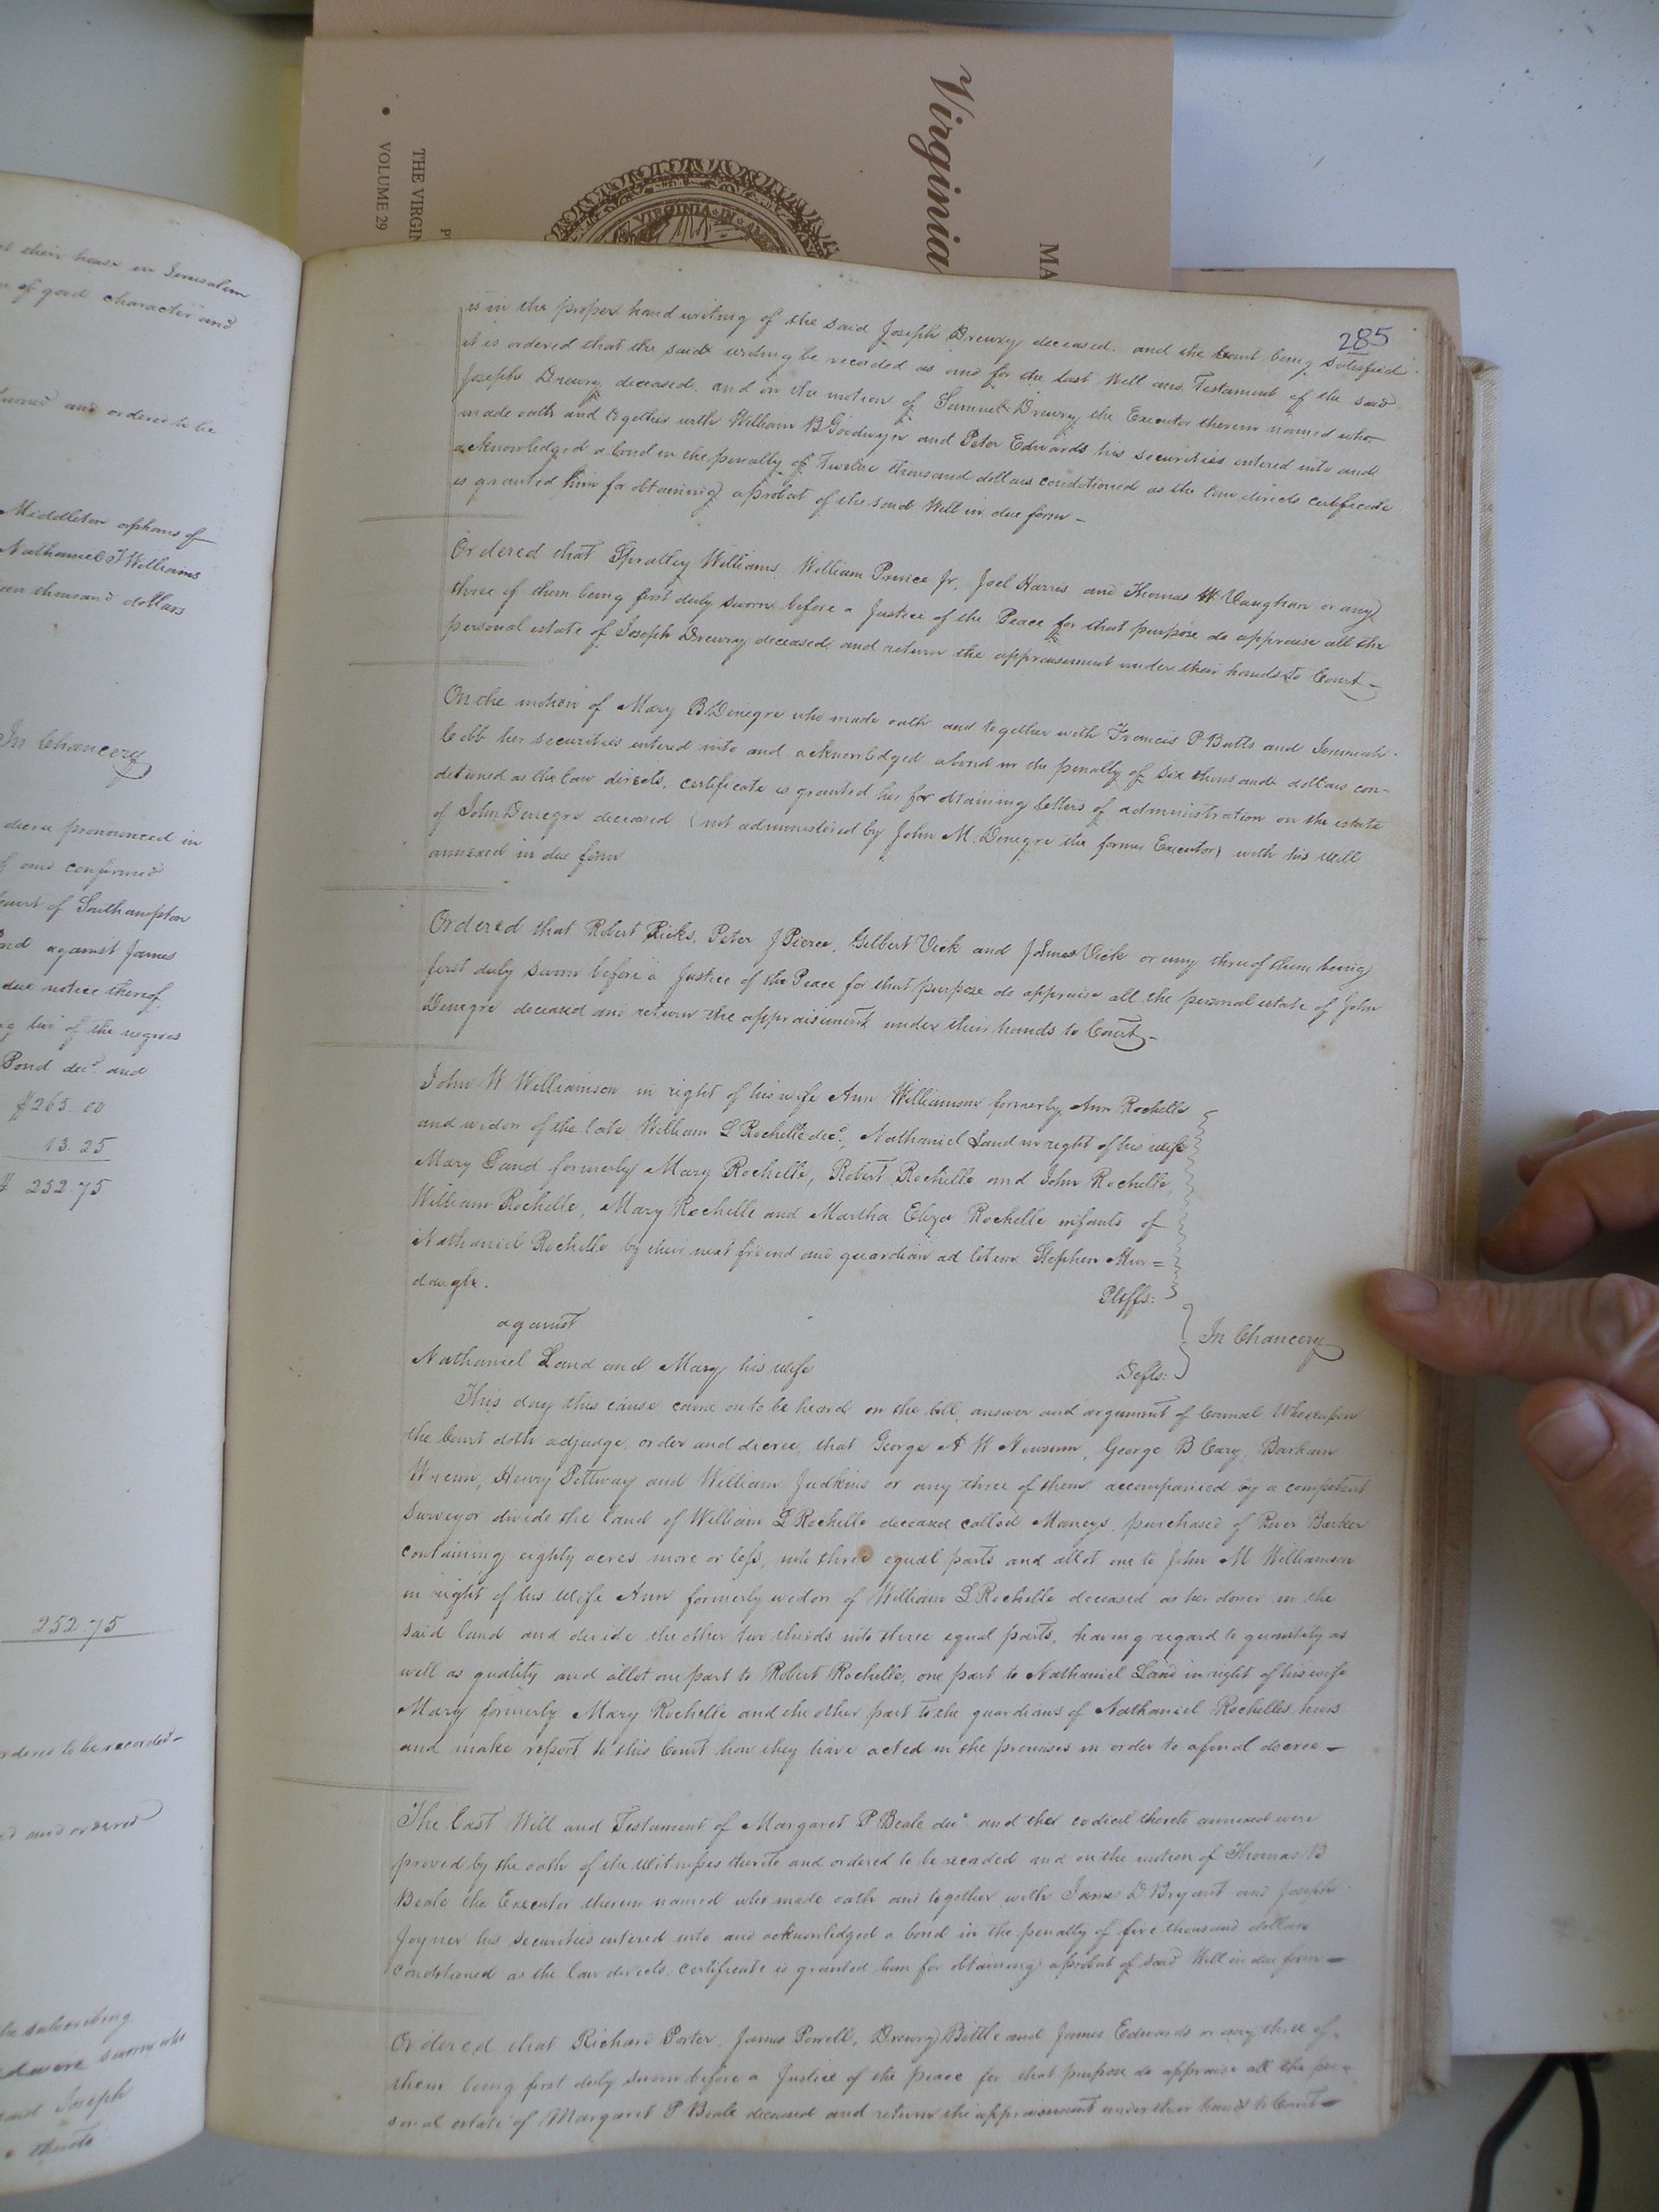 Virginia
MA
THE VIRGIN
VOLUME 29
VIRGINIA
at their house in Jerusalem
of good character and
and ordered to be
Middleton orphans of
Nathaniel J Williams
thousand dollars
In Chancery
decree pronounced in
and confirmed
Court of Southampton
against James
due notice thereof
of the negroes
Pond decd. and
$265.00
13.25
$ 252.75
252.75
ordered to be recorded
and ordered
subscribing
sworn who
Joseph
thereto
285
is in the proper hand writing of the said Joseph Drewry deceased. and the Court being satisfied
it is ordered that the said writing be recorded as and for the last Will and Testament of the said
Joseph Drewry deceased. and on the motion of Samuel Drewry the Executor therein named who
made oath and together with William B Goodwyn and Peter Edwards his securities entered into and
acknowledged a bond in the penalty of Twelve thousand dollars conditioned as the law directs certificate
is granted him for obtaining a probat of the said Will in due form -
Ordered that Spratley Williams, William Prince Jr, Joel Harris and Thomas W. Vaughan or any
three of them being first duly sworn before a Justice of the Peace for that purpose do appraise all the
personal estate of Joseph Drewry deceased. and return the appraisement under their hands to Court -
On the motion of Mary B. Denegre who made oath and together with Francis P Butts and Jeremiah
Cobb her securities entered into and acknowledged a bond in the penalty of six thousand dollars con-
ditioned as the law directs, certificate is granted her for obtaining letters of administration on the estate
of John Denegre deceased (not administered by John M. Denegre the former Executor) with his will
annexed in due form
Ordered that Robert Ricks, Peter J Pierce, Gilbert Vick and Vick or any three of them being
first duly sworn before a Justice of the Peace for that purpose do appraise all the personal estate of John
Denegre deceased and return the appraisement under their hands to Court -
John W Williamson in right of his wife Ann Williamson formerly Ann Rochelle
and widow of the late William L Rochelle decd., Nathaniel Land in right of his wife
Mary Land formerly Mary Rochelle, Robert Rochelle and John Rochelle,
William Rochelle, Mary Rochelle and Martha Eliza Rochelle infants of
Nathaniel Rochelle by their next friend and guardian ad litem Stephen Mur=
daugh.
Pltffs:
against
In Chancery
Nathaniel Land and Mary his wife
Defts:
This day this cause came on to be heard on the bill, answer and argument of Counsel Whereupon
the Court doth adjudge, order and decree, that George A W Newsum, George B Cary, Barham
Wrenn, Henry Pettway and William Judkins or any three of them accompanied by a competent
Surveyor divide the land of William L Rochelle deceased called Maneys, purchased of River Barker
containing eighty acres more or less, into three equal parts and allot one to John M Williamson
in right of his wife Ann formerly widow of William L Rochelle deceased as her dower in the
said land and divide the other two thirds into three equal parts, having regard to quantity as
well as quality and allot one part to Robert Rochelle, one part to Nathaniel Land in right of his wife
Mary formerly Mary Rochelle and the other part to the guardians of Nathaniel Rochelles heirs
and make report to this Court how they have acted in the premises in order to a final decree -
The last Will and Testament of Margaret P Beale decd. and the codicil thereto annexed were
proved by the oath of the witnesses thereto and ordered to be recorded and on the motion of Thomas B
Beale the Executor therein named who made oath and together with James D Bryant and Joseph
Joyner his securities entered into and acknowledged a bond in the penalty of five thousand dollars
conditioned as the law directs, certificate is granted him for obtaining a probat of said Will in due form -
Ordered that Richard Porter, James Powell, Drewry Bittle and James Edwards or any three of
them being first duly sworn before a Justice of the peace for that purpose do appraise all the per-
sonal estate of Margaret P Beale deceased and return the appraisement under their hands to Court -